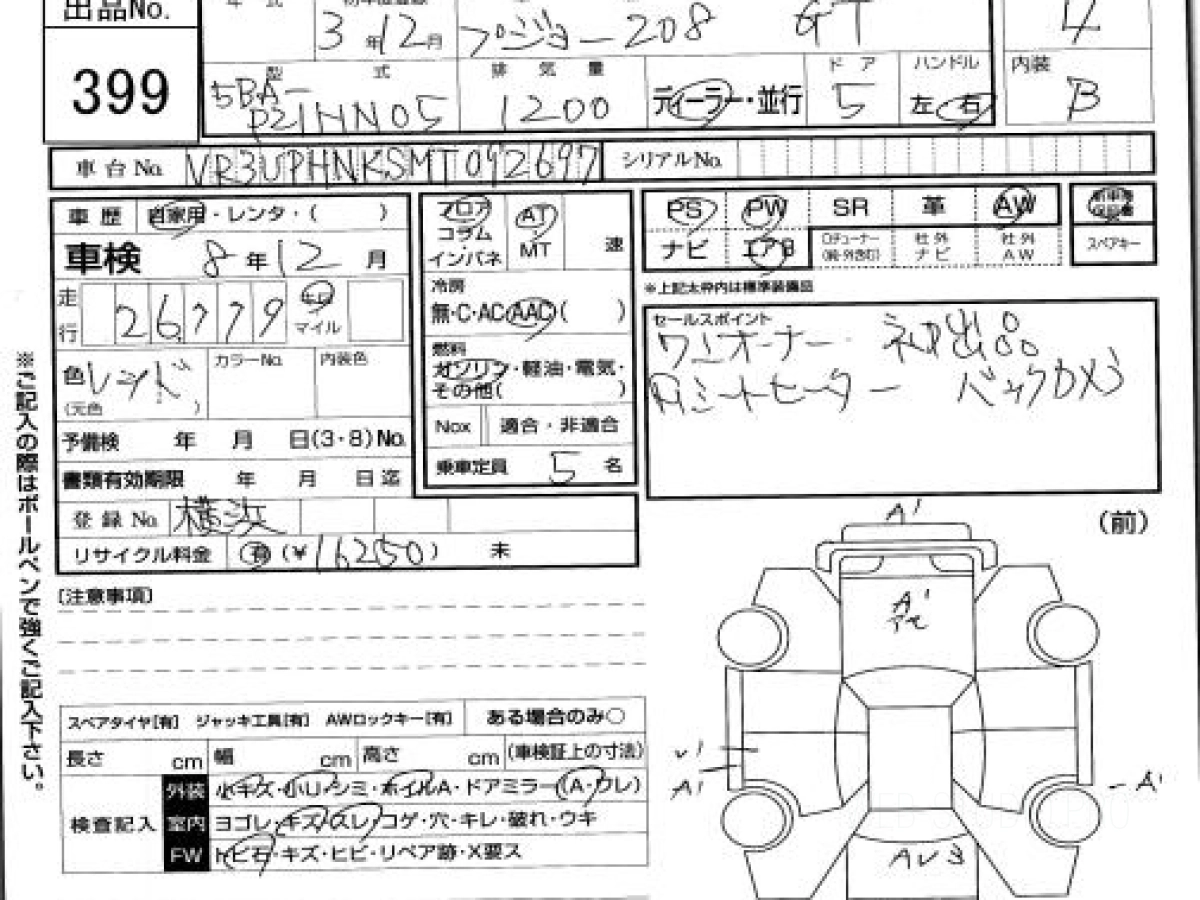 出品No.
399
初年度登録
3年12月
プジョー208 GT
4
型式
5BA-
P21HN05
排気量
1200
ディーラー・並行
ドア
5
ハンドル
左 右
内装
B
車台No. VR3UPHNKSMT092697
シリアルNo.
車歴 自家用・レンタ・( )
車検 8年12月
走行 26,779 キロ マイル
色 レッド
(元色 )
カラーNo. 内装色
予備検 年 月 日(3・8)No.
書類有効期限 年 月 日迄
登録No. 横浜
リサイクル料金 有(¥16250) 未
フロア
コラム
インパネ
AT
・
MT
速
冷房
無・C・AC・AAC( )
燃料
ガソリン・軽油・電気・
その他( )
Nox 適合・非適合
乗車定員 5 名
PS PW SR 革 AW
ナビ エアB
社外
ナビ
社外
AW
スペアキー
※上記太枠内は標準装備品
セールスポイント
ワンオーナー
シートヒーター
※ご記入の際はボールペンで強くご記入下さい。
[注意事項]
スペアタイヤ[有] ジャッキ工具[有] AWロックキー[有] ある場合のみ○
長さ cm 幅 cm 高さ cm (車検証上の寸法)
検査記入
外装 小キズ・小凹・シミ・ホイルA・ドアミラー(A・ワレ)
室内 ヨゴレ・キズ・スレ・コゲ・穴・キレ・破れ・ウキ
FW トビ石・キズ・ヒビ・リペア跡・X要ス
(前)
A1
A1
アセ
A1
A1